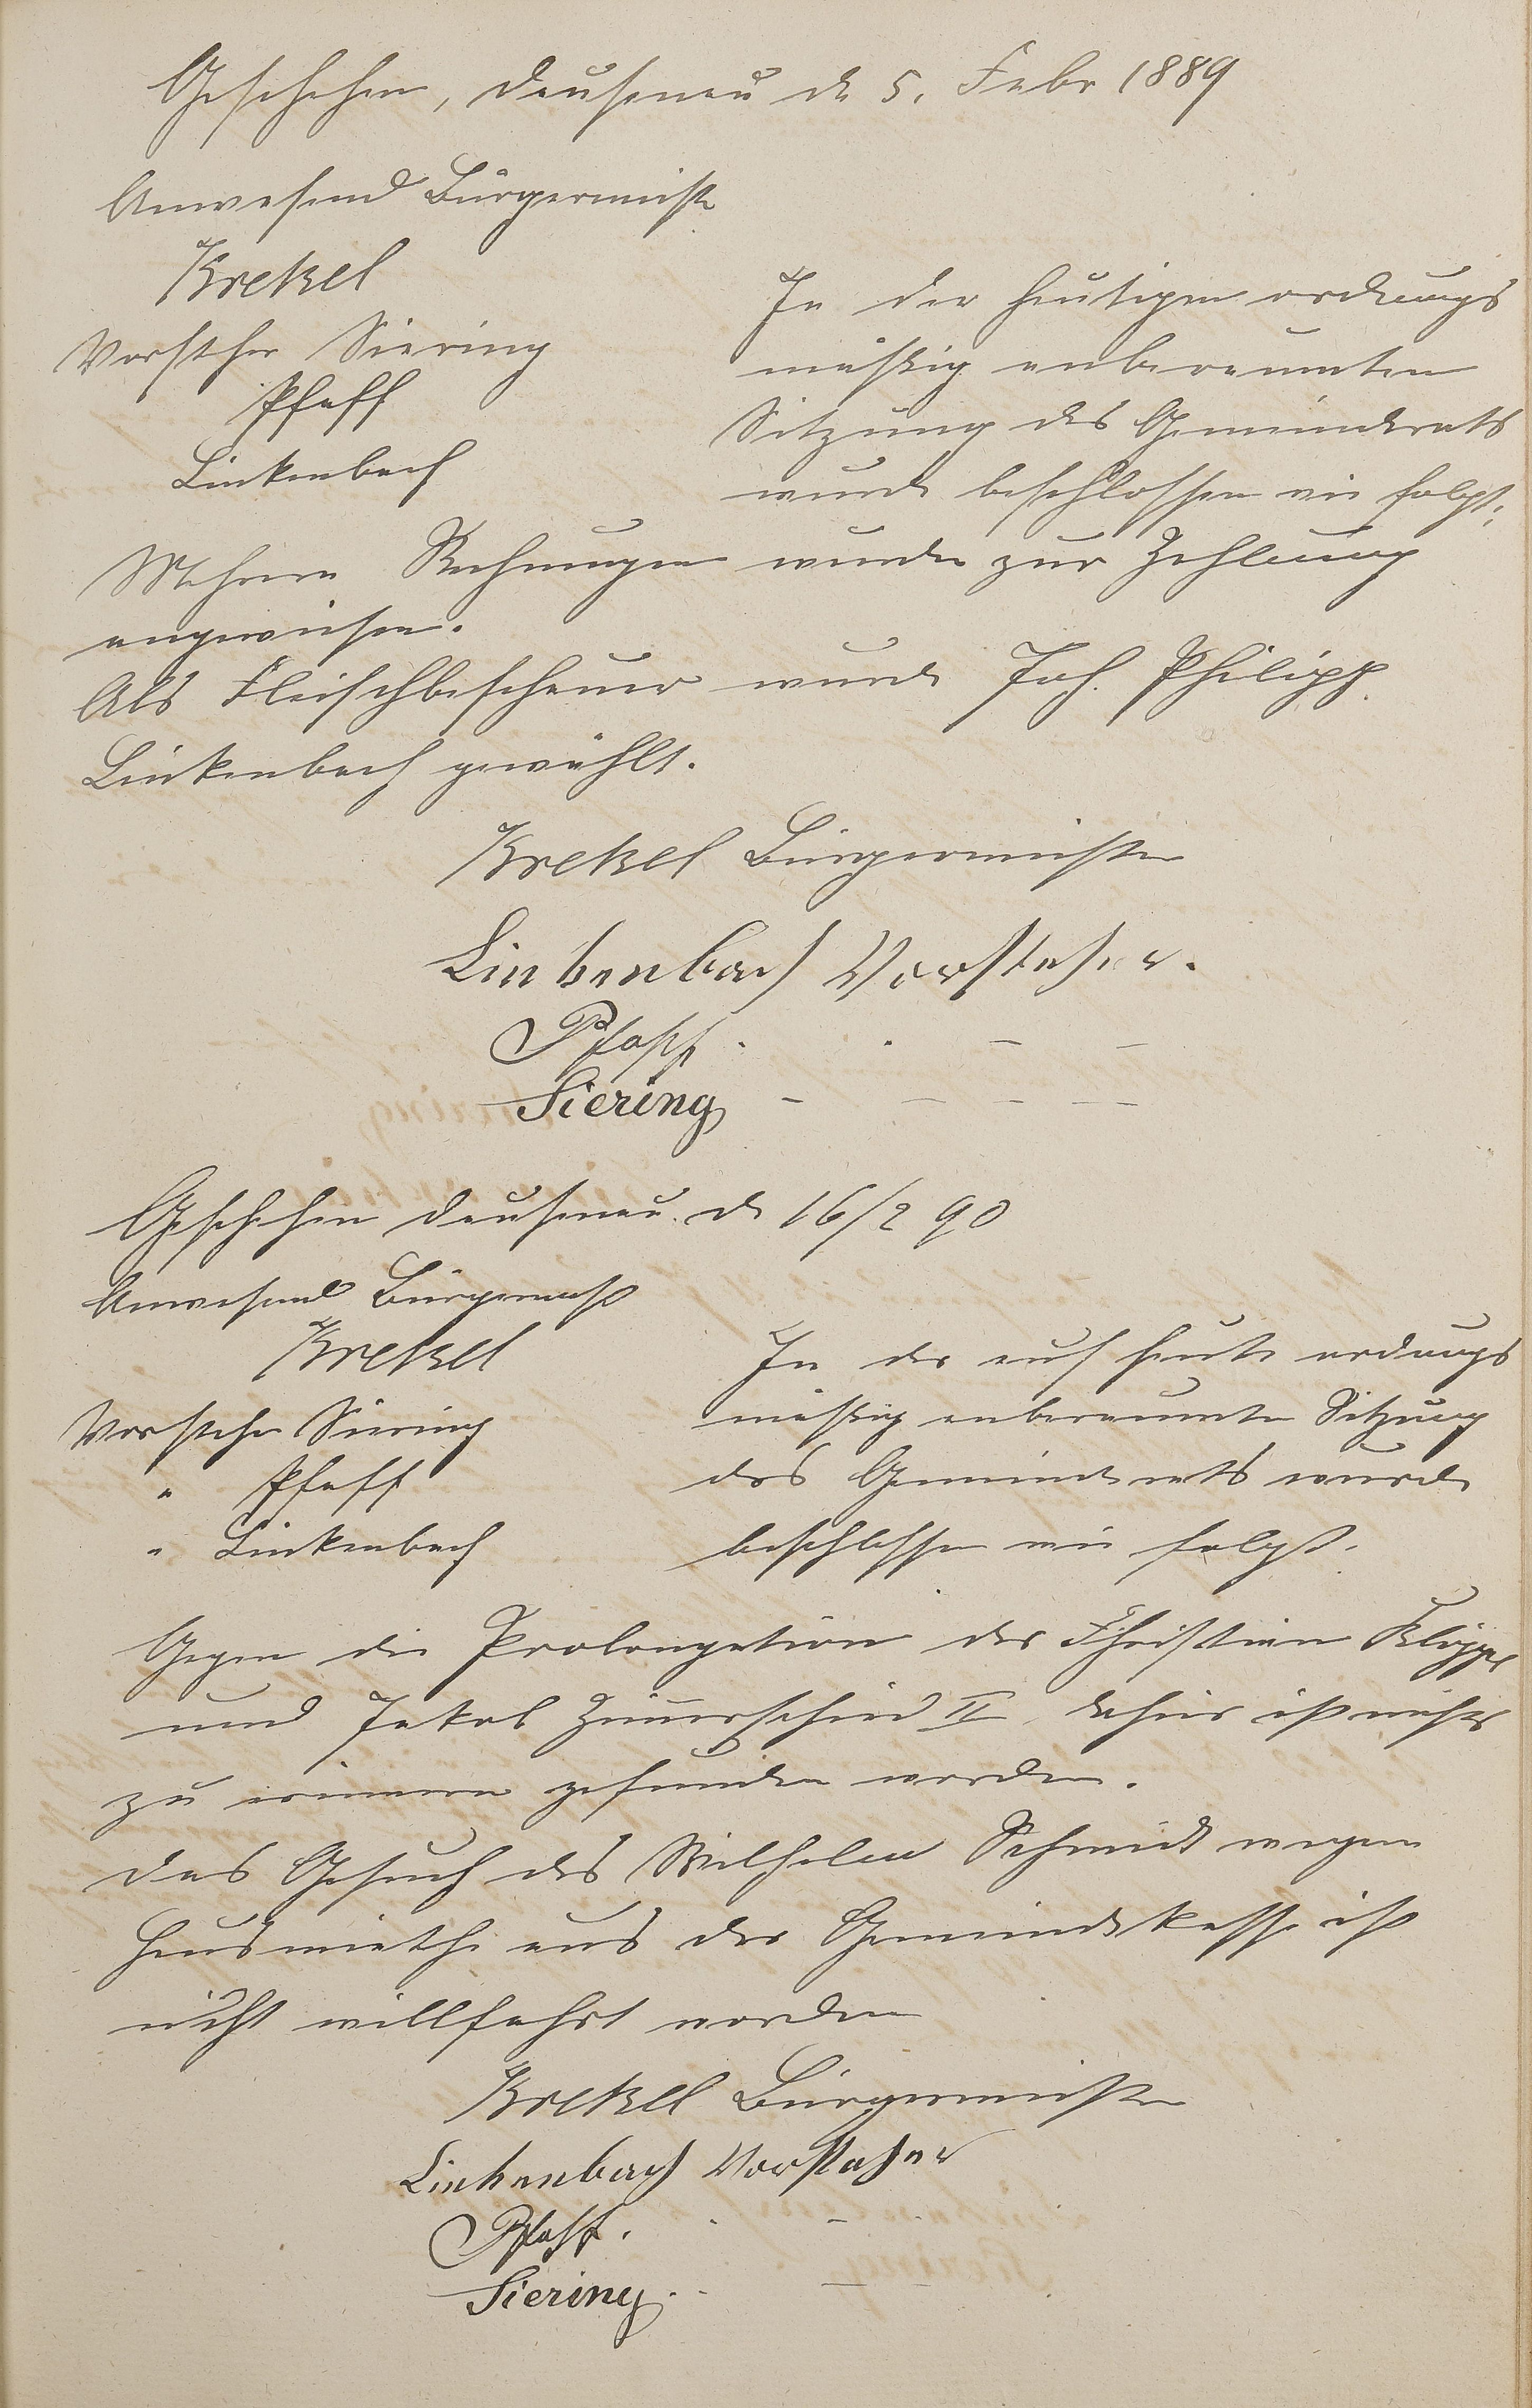 Geschehen, Dausenau d 5. Febr 1889
Anwesend Bürgermeistr
Krekel
Vorsther Siering
Pfaff
Linkenbach
In der heutigen ordnungs
mäßig anberaumten
Sitzung des Gemeinderats
wurde beschlossen wie folgt:
Mehrere Rechnungen wurden zur Zahlung
angewiesen.
Als Fleischbeschauer wurde Joh. Philipp
Linkenbach gewählt.
Krekel Bürgermeister
Linkenbach Vorsteher.
Pfaff
Siering
Geschehen Dausenau d 16/2 90
Anwesend Bürgermst
Krekel
Vorsteher Siering
" Pfaff
" Linkenbach
In der auf heute ordnungs
mäßig anberaumten Sitzung
des Gemeinderats wurde
beschlossen wie folgt.
Gegen die Prolongation des Christian Klöppel
und Jakob Zimerschied II dahier ist nichts
zu erinnern gefunden worden.
Das Gesuch des Wilhelm Schmidt wegen
Hausmiethe aus der Gemeindekasse ist
nicht willfahrt worden
Krekel Bürgermeister
Linkenbach Vorsteher
Pfaff.
Siering